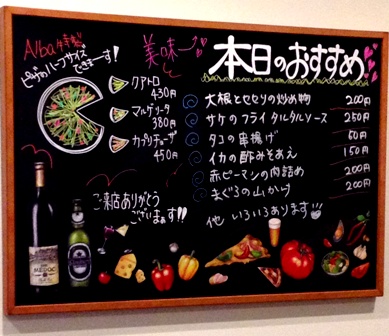 Alba特製
ピザのハーフサイズ
できまーす!
クアトロ
430円
マルゲリータ
380円
カプリチョーザ
450円
ご来店ありがとう
ございます!!
美味しーい
本日のおすすめ
大根とセセリの炒め物 200円
サケのフライ タルタルソース 250円
タコの串揚げ 50円
イカの酢みそあえ 150円
赤ピーマンの肉詰め 200円
まぐろの山かけ 200円
他 いろいろあります
MEDOC